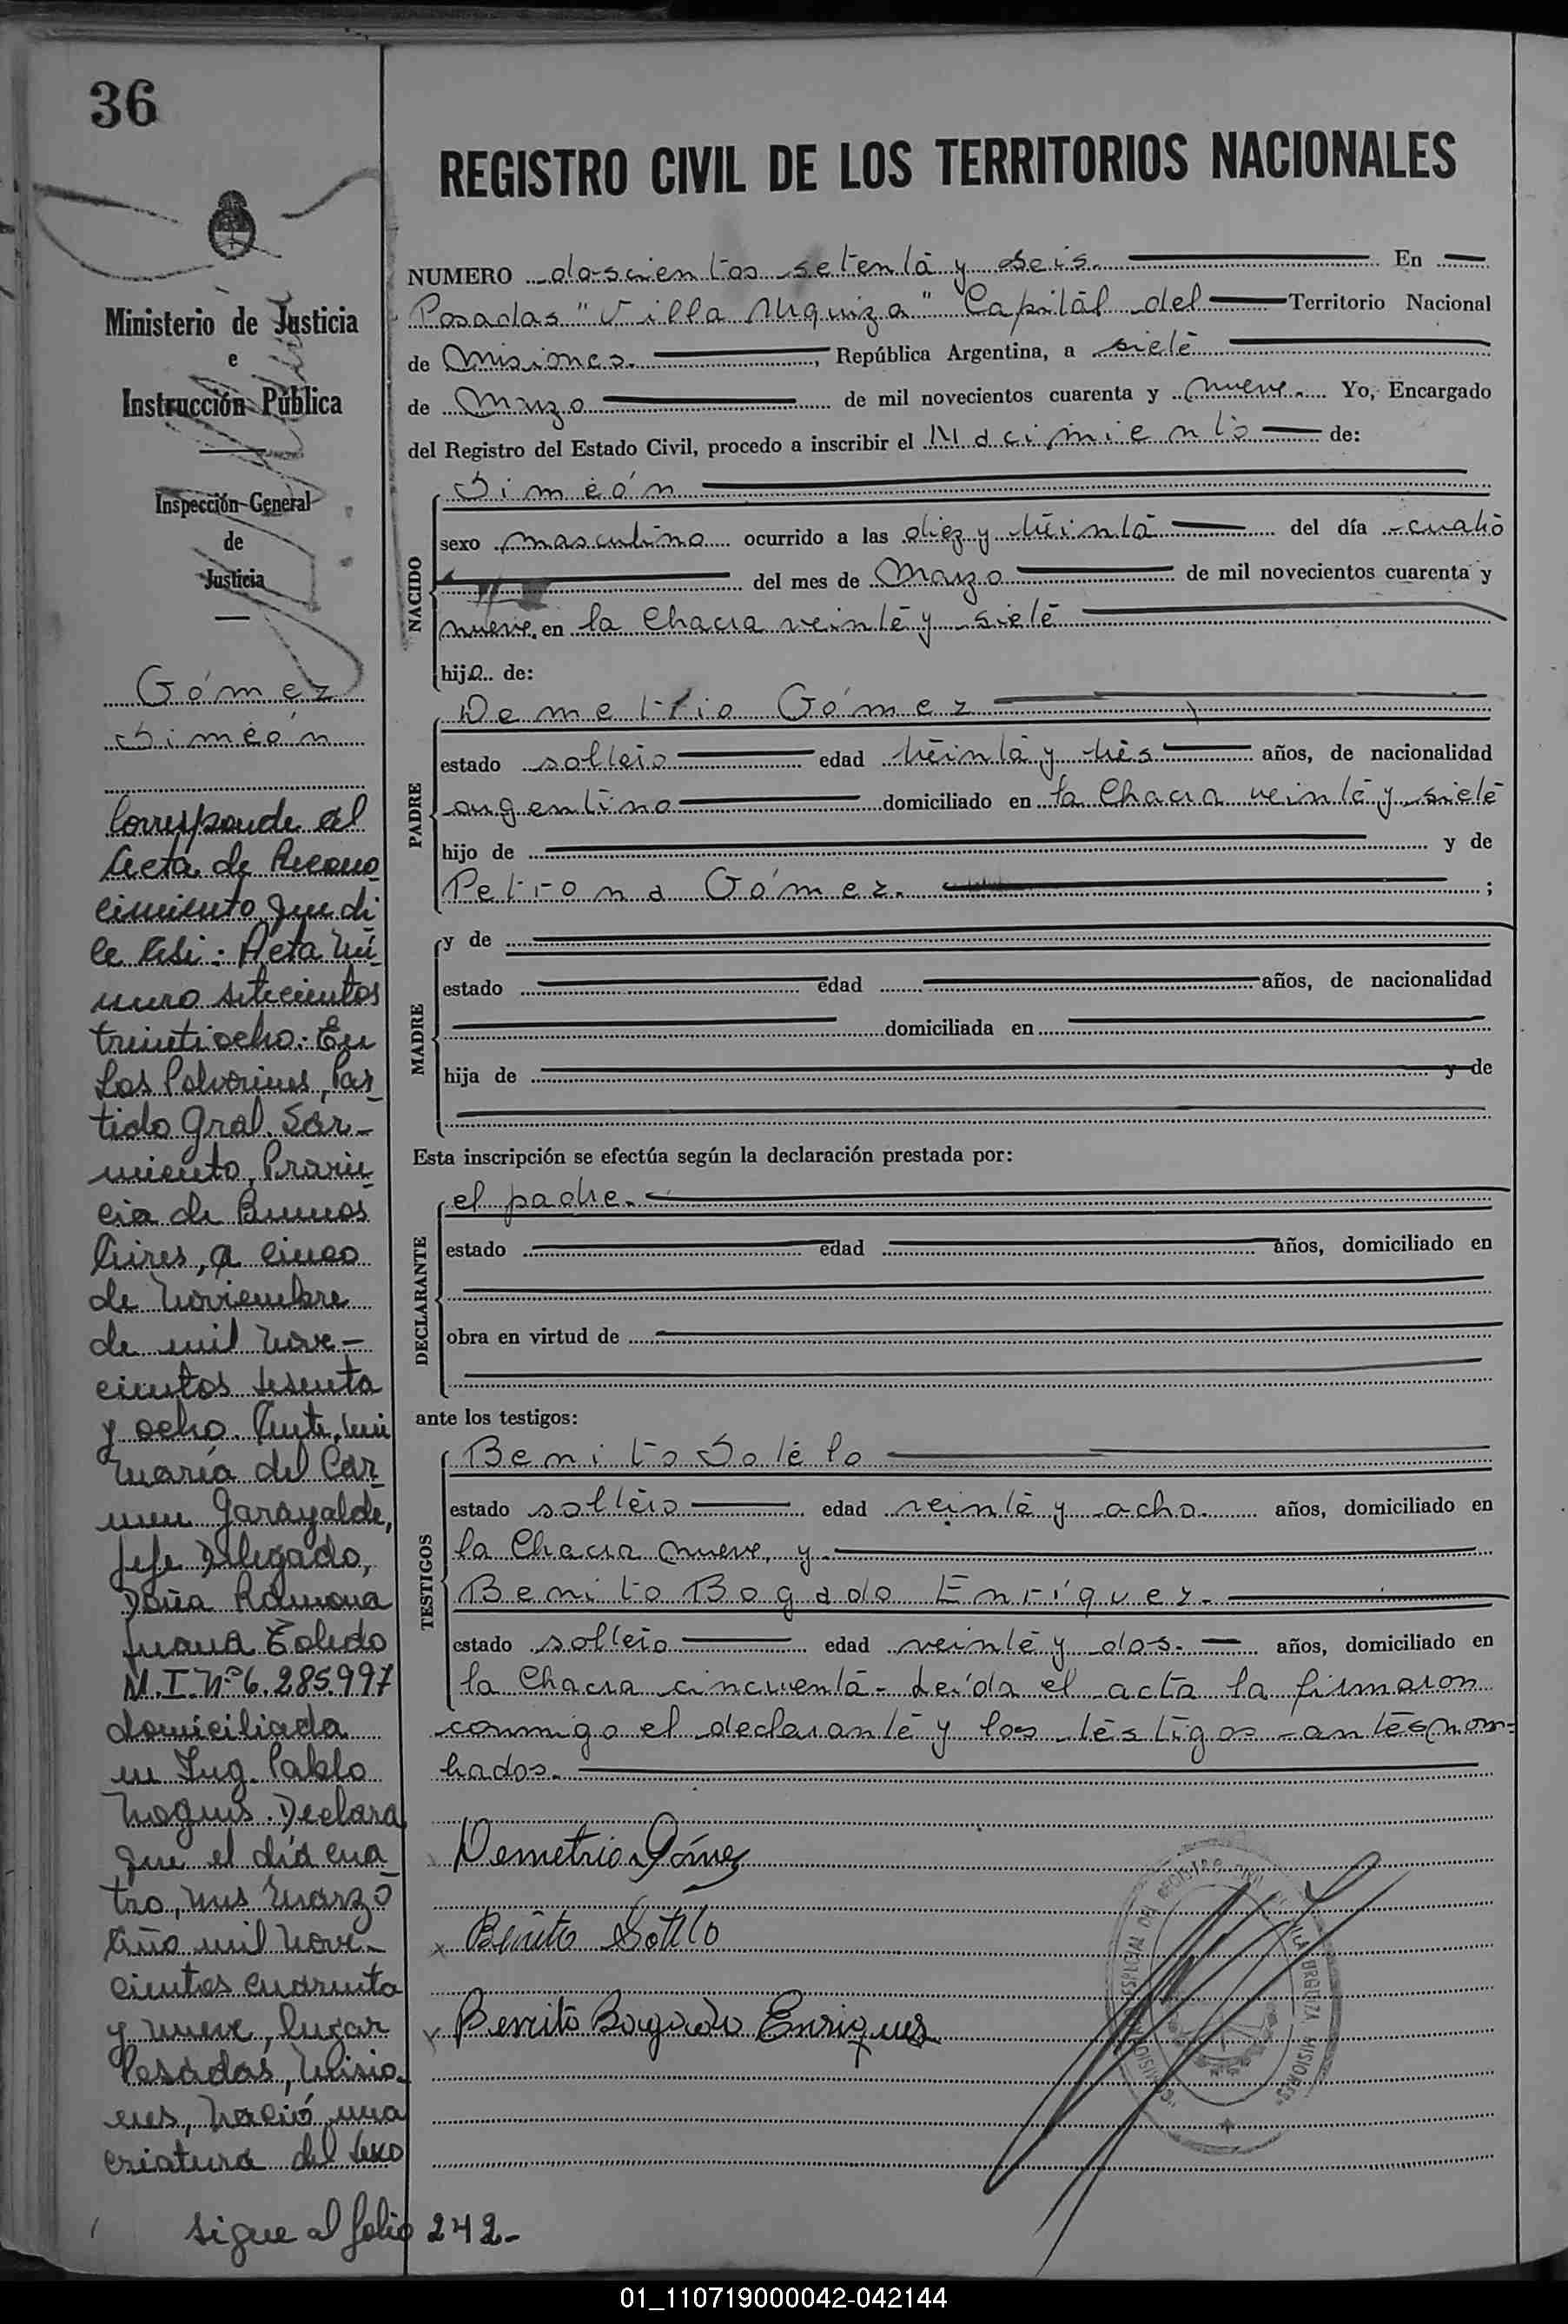 36
REGISTRO CIVIL DE LOS TERRITORIOS NACIONALES
Ministerio de Justicia
e
Instrucción Pública
Inspección General
de
Justicia
Gómez
Simeón
Corresponde al
Acta de Recono
cimiento que di
ce Asi: Acta Nú
mero setecientos
treintiocho: En
Los Polvorines, Par
tido Gral. Sar-
miento, Provin
cia de Buenos
Aires, a cinco
de Noviembre
de mil nove-
cientos sesenta
y ocho. Ante mi
María del Car
men Garayalde,
Jefe Delegado,
Doña Ramona
Juana Toledo
M.I. Nº 6.285.997
domiciliada
en Ing. Pablo
Nogues. Declara
que el día cua
tro, mes Marzo
Año mil nove-
cientos cuarenta
y nueve, lugar
Posadas, Misio-
nes, Nació una
criatura del sexo
sigue al folio 242-
NUMERO doscientos setenta y seis. En
Posadas "Villa Urquiza" Capital del Territorio Nacional
de Misiones. , República Argentina, a siete
de Marzo de mil novecientos cuarenta y nueve. Yo, Encargado
del Registro del Estado Civil, procedo a inscribir el Nacimiento de:
NACIDO
Simeón
sexo masculino ocurrido a las diez y treinta del día cuatro
del mes de Marzo de mil novecientos cuarenta y
nueve, en la Chacra veinte y siete
hijo de:
PADRE
Demetrio Gómez
estado soltero edad treinta y tres años, de nacionalidad
argentino domiciliado en la Chacra veinte y siete
hijo de y de
Petrona Gómez. ;
MADRE
y de
estado edad años, de nacionalidad
domiciliada en
hija de y de
Esta inscripción se efectúa según la declaración prestada por:
DECLARANTE
el padre.
estado edad años, domiciliado en
obra en virtud de
ante los testigos:
TESTIGOS
Benito Sotelo
estado soltero edad veinte y ocho años, domiciliado en
la Chacra nueve, y
Benito Bogado Enríquez.
estado soltero edad veinte y dos. años, domiciliado en
la Chacra cincuenta - Leída el acta la firmaron
conmigo el declarante y los testigos antes nom-
brados.
Demetrio Gómez
Benito Sotelo
Benito Bogado Enriquez
01_110719000042-042144